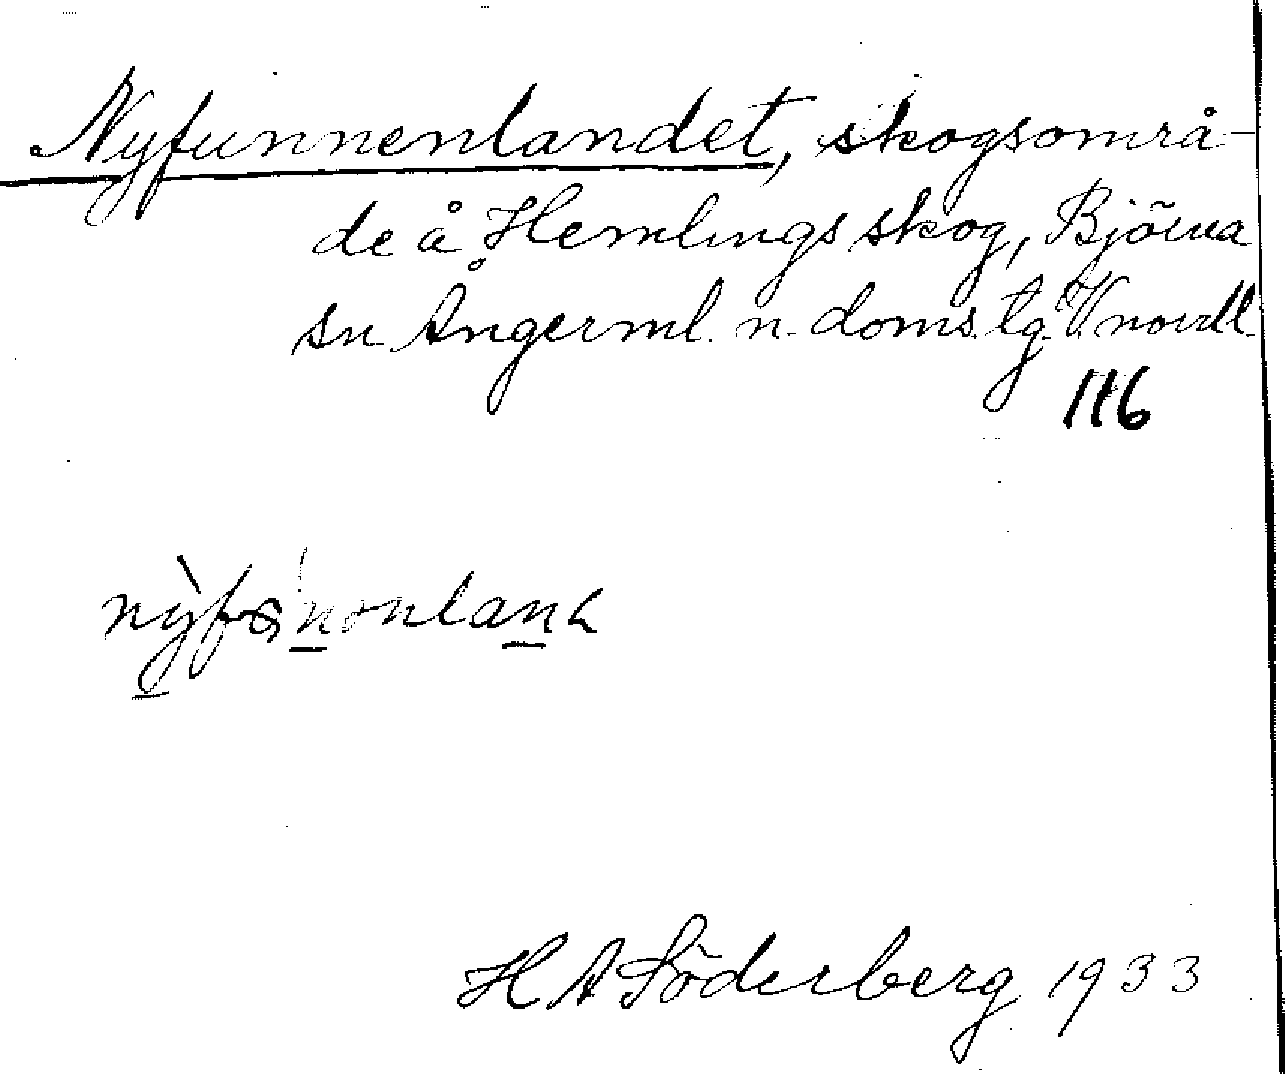 Nyfunnenlandet, skogsområ-
de å Hemlings skog, Björna
sn Ångerml. n. doms. tg. Vnorrl
116
H A Söderberg 1933